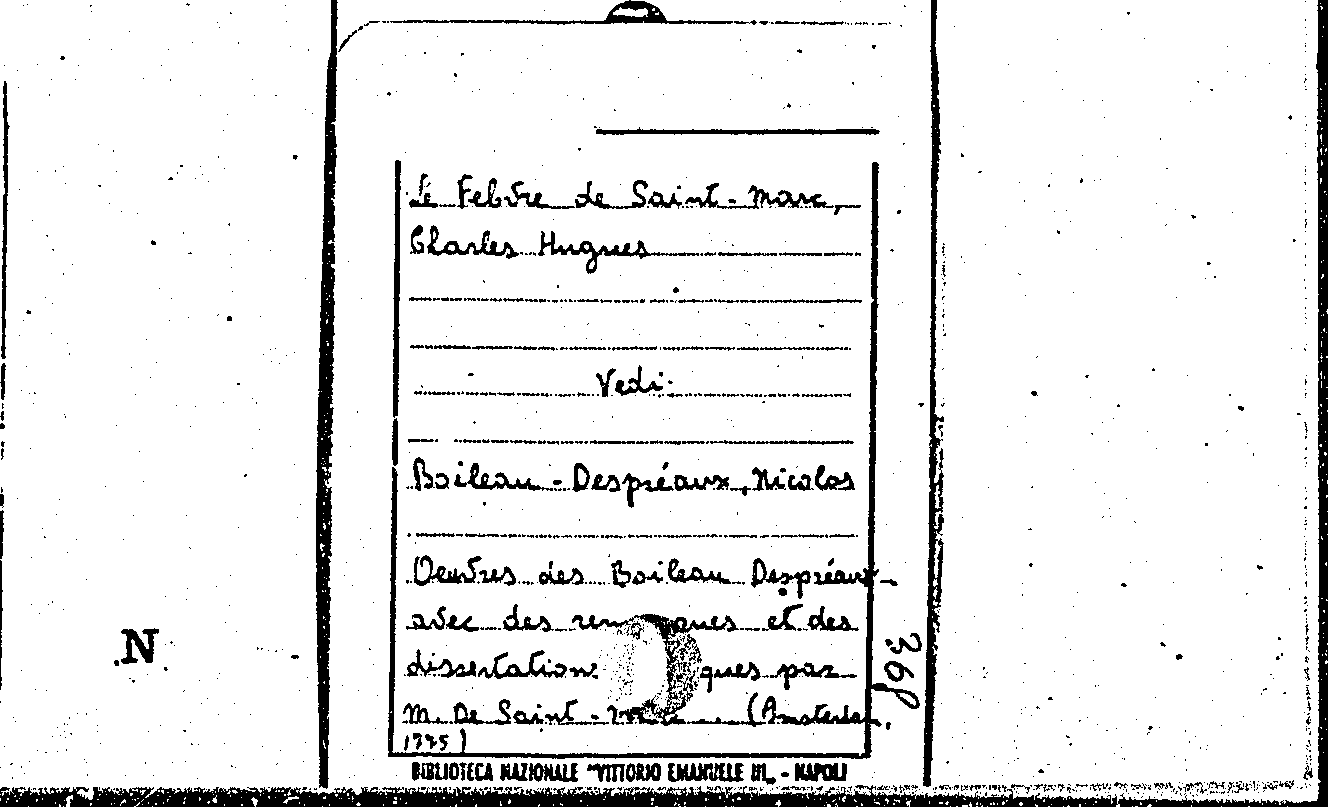 Le Febvre de Saint-Marc,
Charles Hugues
Vedi:
Boileau-Despréaux, Nicolas
Oeuvres des Boileau Despréaux
avec des et des
par
M. De Saint- (Amsterdam,
1775)
BIBLIOTECA NAZIONALE "VITTORIO EMANUELE III" - NAPOLI
N
368